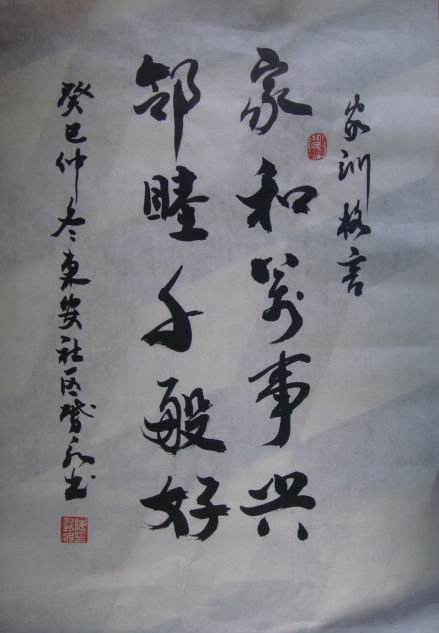 家训格言
家和万事兴
邻睦千般好
癸巳仲冬东安社区赞永书